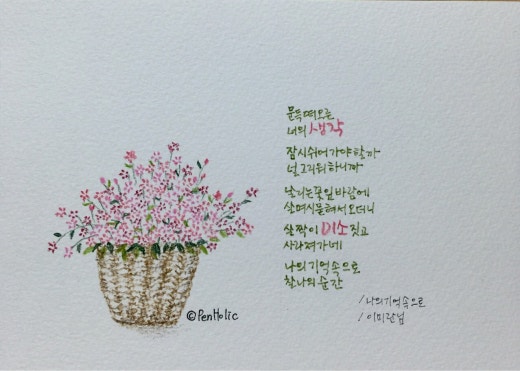 문득 떠오른
너의 생각
잠시 쉬어가야 할까
널 그리워 하니까
날리는 꽃잎 바람에
살며시 묻혀서 오더니
살짝이 미소 짓고
사라져가네
나의 기억속으로
찰나의 순간
/나의 기억속으로
/이미란님
©PenHolic